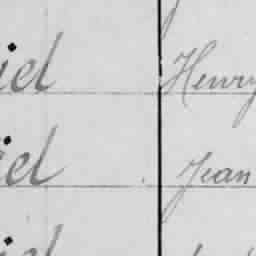 iel Henry
iel Jean